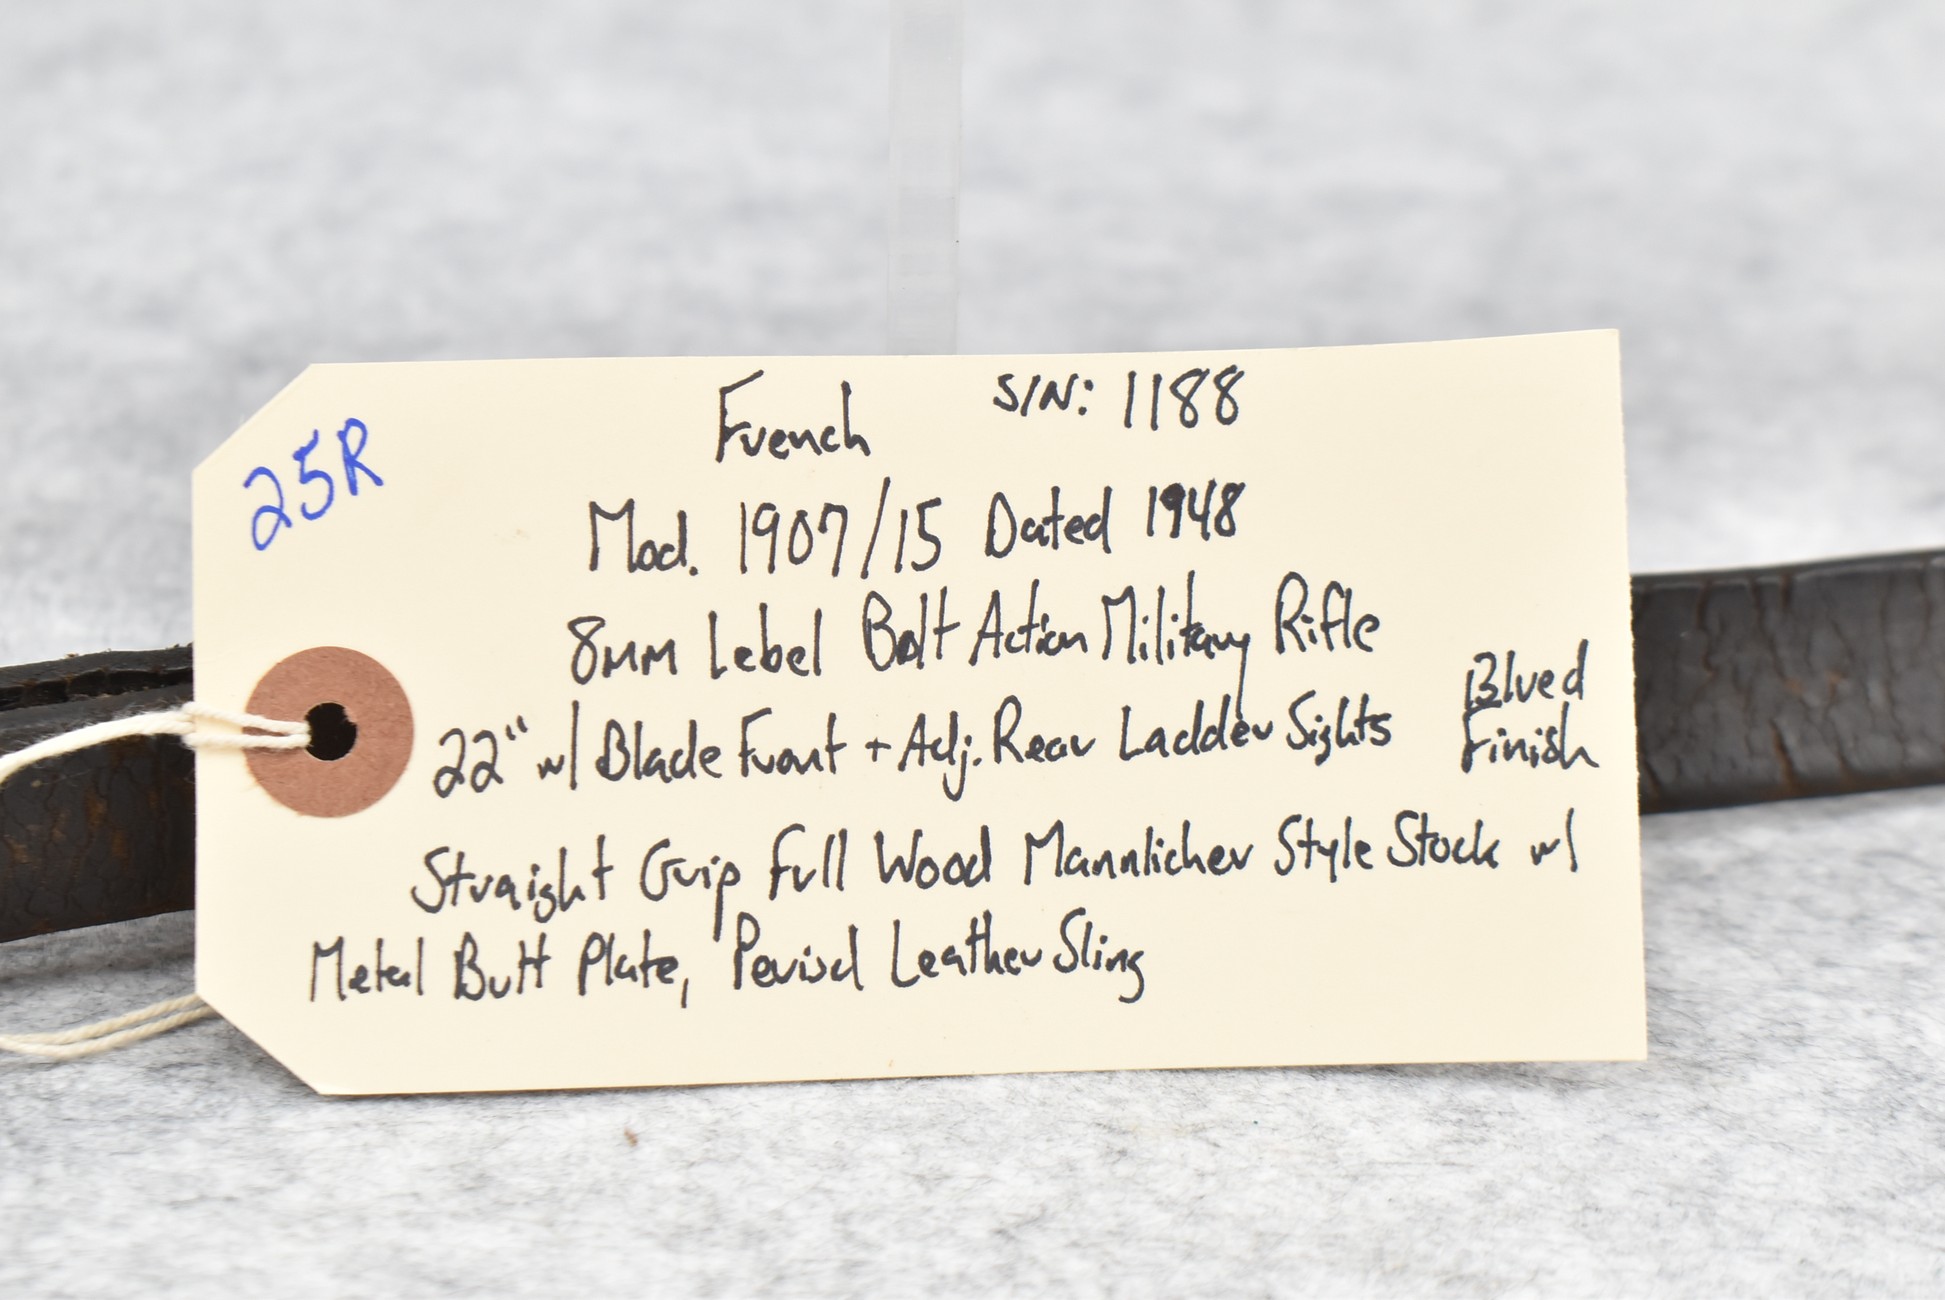 25R
French S/N: 1188
Mod. 1907/15 Dated 1948
8mm Lebel Bolt Action Military Rifle
22" w/ Blade Front + Adj. Rear Ladder Sights Blued Finish
Straight Grip Full Wood Mannlicher Style Stock w/
Metal Butt Plate, Period Leather Sling